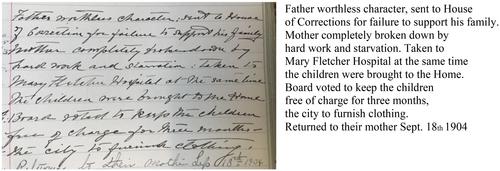 Father worthless character; sent to House
of Correction for failure to support his family.
Mother completely broken down by
hard work and starvation: taken to
Mary Fletcher Hospital at the same time
the children were brought to the Home
Board voted to keep the children
free of charge for three months -
the city to furnish clothing.
Returned to their mother Sep 18th 1904
Father worthless character, sent to House
of Corrections for failure to support his family.
Mother completely broken down by
hard work and starvation. Taken to
Mary Fletcher Hospital at the same time
the children were brought to the Home.
Board voted to keep the children
free of charge for three months,
the city to furnish clothing.
Returned to their mother Sept. 18th 1904